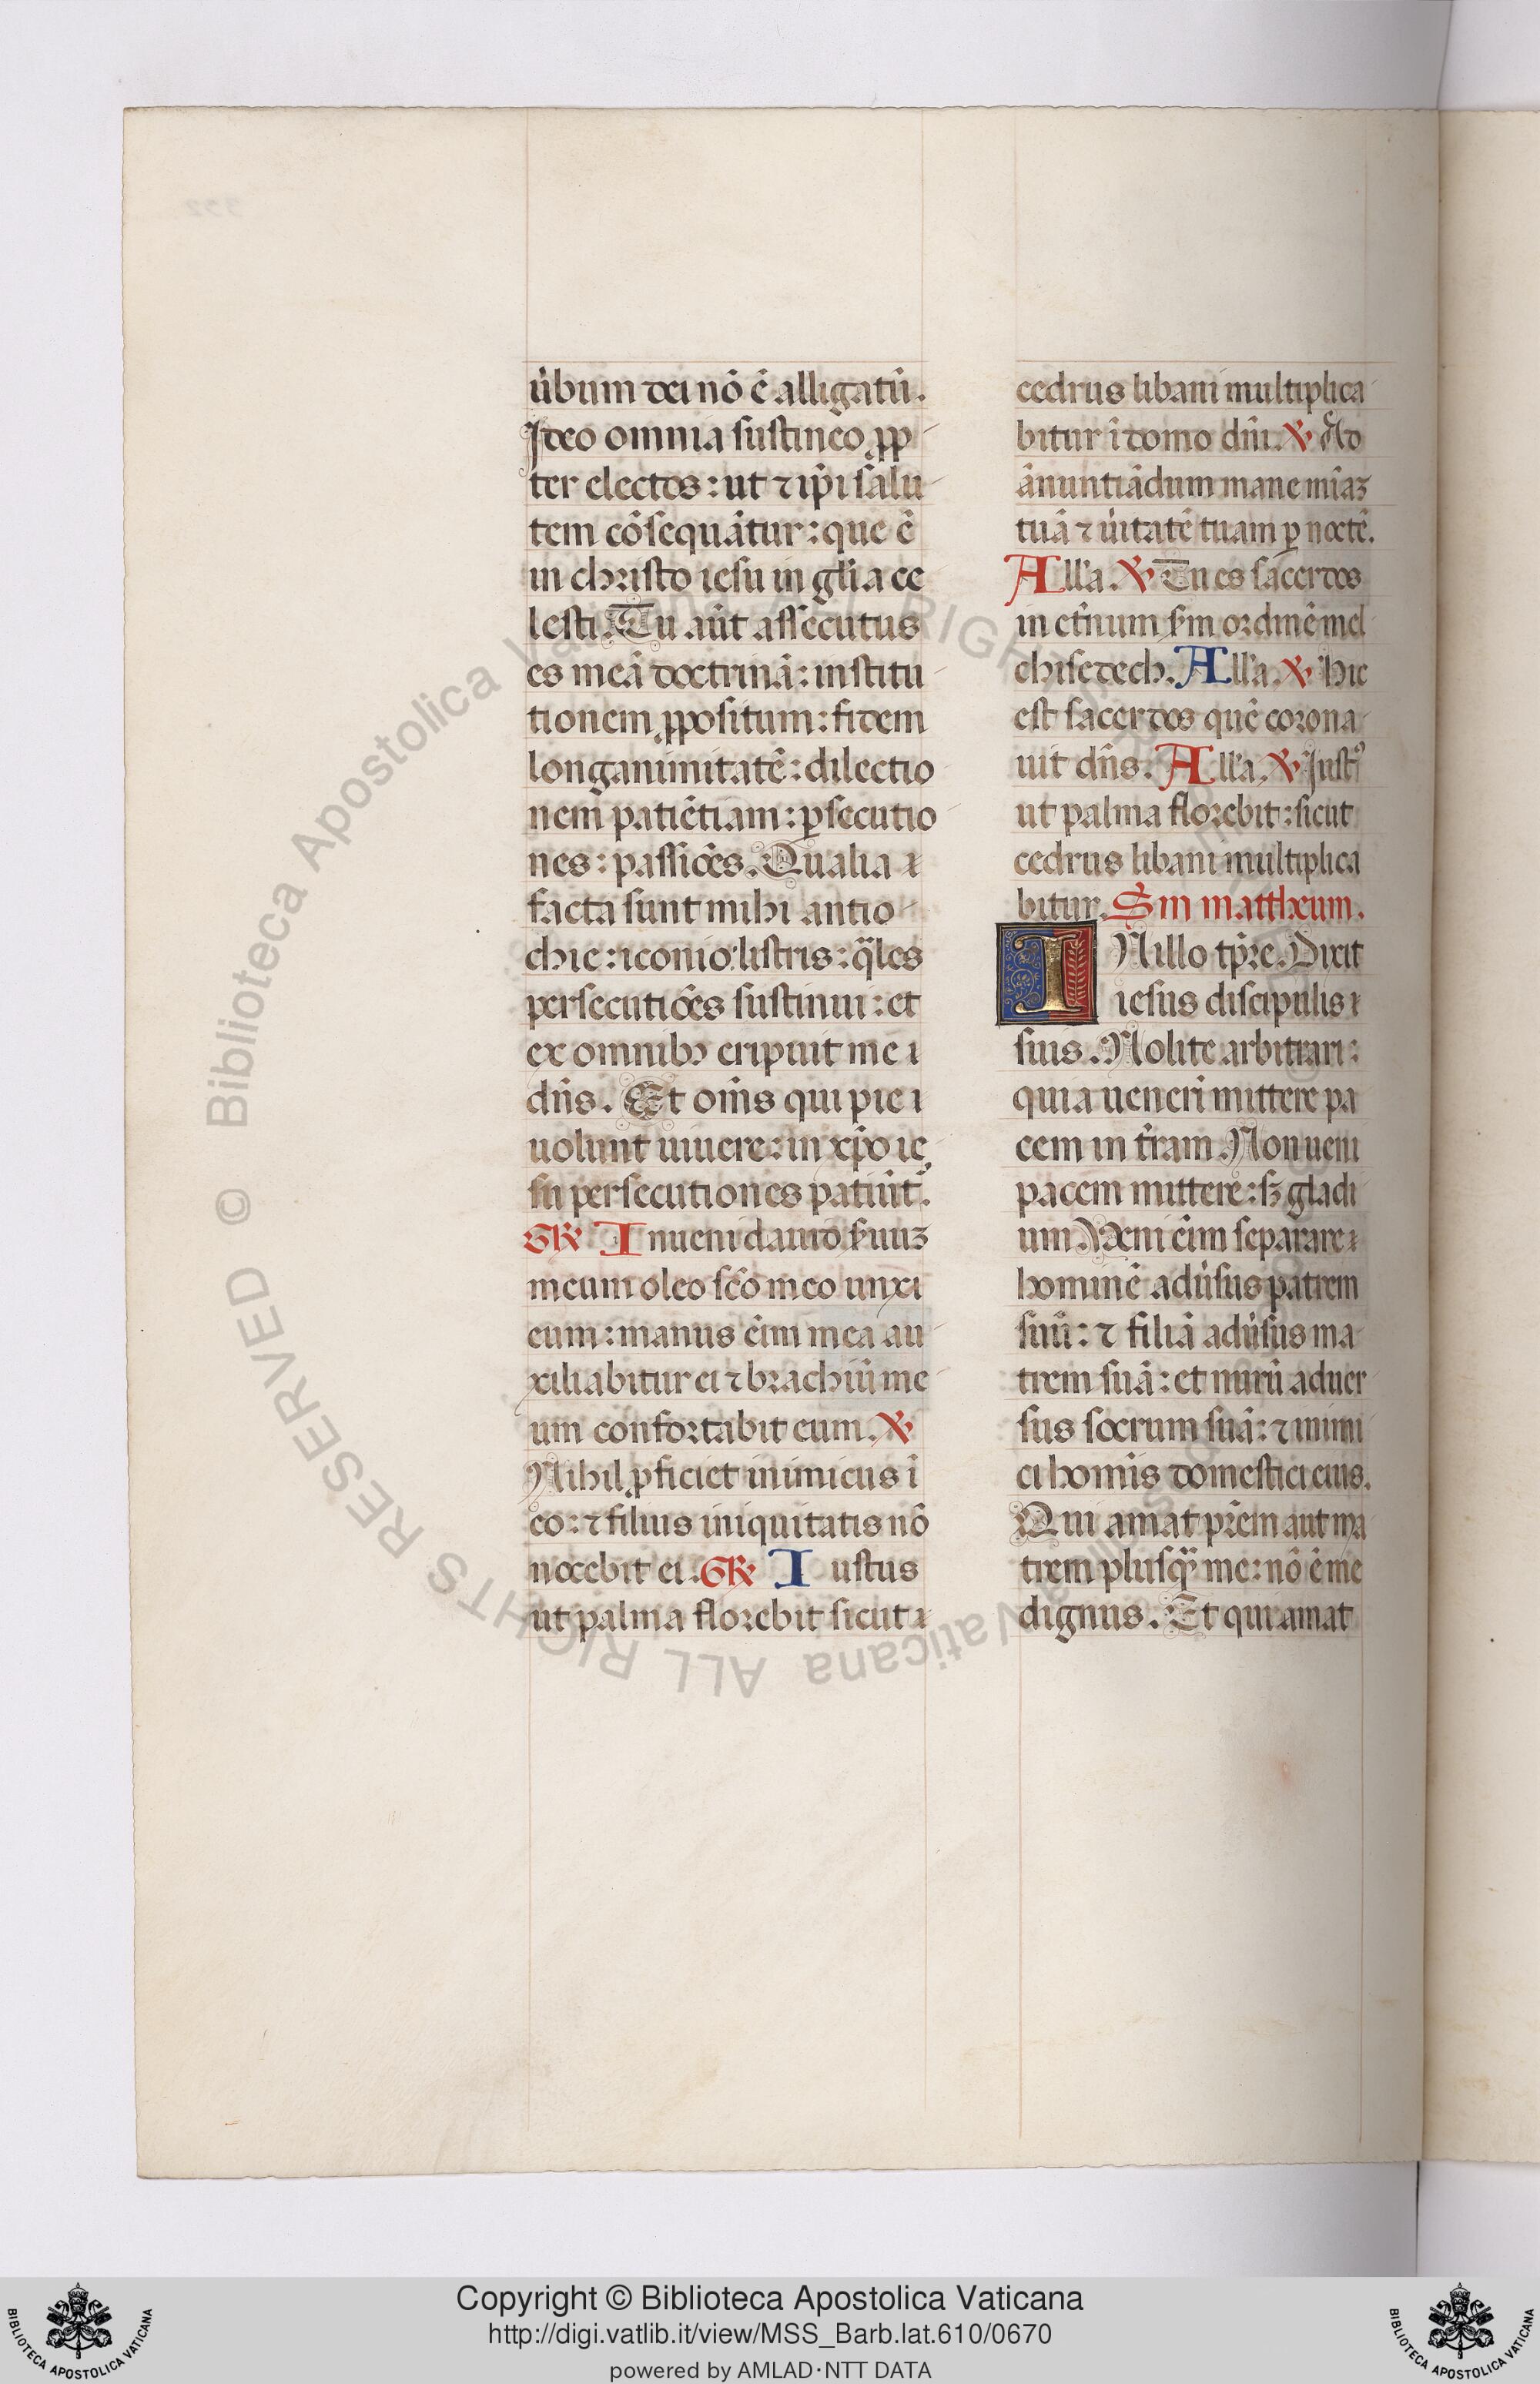 u̇bum dei nō ē alligatū.
Ideo omnia sustineo ꝓp
ter electos: ut ⁊ ip̄i salu
tem cōsequātur: que ē
in christo iesu in gl̄ia ce
lesti. Tu aūt assecutus
es meā doctrinā: institu
tionem ꝓpositum: fidem
longanimitatē: dilectio
nem patiētiam: ꝑsecutio
nes: passiōes. Qualia ı
facta sunt mihi antio
chie: iconio: listris: q̄les
persecutiōes sustinui: et
ex omnibꝫ eripuit me ı
dn̄s. Et om̄s qui pie ı
uolunt uiuere: in xp̄o ie
su persecutiones patiūt̄.
GR̄ Inueni dauid s̄uuꝫ
meum oleo sc̄o meo unxi
eum: manus ēim mea au
xiliabitur ei ⁊ brachiū me
um confortabit eum. ℣
Nihil ꝓficiet inimicus ī
eo: ⁊ filius iniquitatis nō
nocebit ei. GR̄ Iustus
ut palma florebit sicut ı
cedrus libani multiplica
bitur ī domo dn̄i. ℣ Ad
ānuntiādum mane mīaꝫ
tuā ⁊ u̇itatē tuam ꝑ noctē.
All'a. ℣ Tu es sacerdos
in et̄num s̄m ordinē mel
chisedech. All'a. ℣ Hic
est sacerdos quē corona
uit dn̄s. All'a. ℣ Iustꝰ
ut palma florebit: sicut
cedrus libani multiplica
bitur. Sm mattheum.
IN illo tp̄re. Dixit
iesus discipulis ı
suis. Nolite arbitrari:
quia ueneri mittere pa
cem in t̄ram. Non ueni
pacem mittere: sꝫ gladi
um. Veni ēim separare ı
hominē adu̇sus patrem
suū: ⁊ filiā adu̇sus ma
trem suā: et nurū aduer
sus socrum suā: ⁊ inimi
ci homīs domestici eius.
Qui amat pr̄em aut ma
trem plusq̄ me: nō ē me
dignus. Et qui amat
© Biblioteca Apostolica Vaticana ALL RIGHTS RESERVED
Copyright © Biblioteca Apostolica Vaticana
http://digi.vatlib.it/view/MSS_Barb.lat.610/0670
powered by AMLAD·NTT DATA
BIBLIOTECA APOSTOLICA VATICANA
BIBLIOTECA APOSTOLICA VATICANA